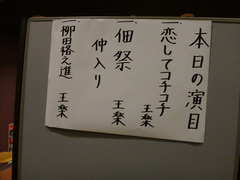 本日の演目
一、恋してコチコチ 王楽
一、佃祭 王楽
仲入り
一、柳田格之進 王楽